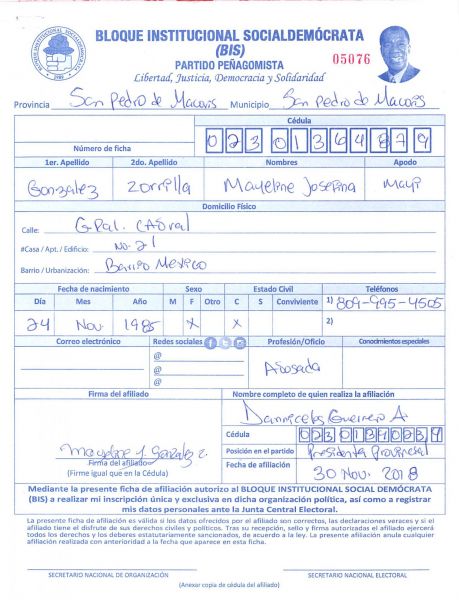 BLOQUE INSTITUCIONAL SOCIALDEMÓCRATA
(BIS)
PARTIDO PEÑAGOMISTA
05076
Libertad, Justicia, Democracia y Solidaridad
Provincia San Pedro de Macoris Municipio San Pedro de Macoris
Cédula
Número de ficha 023 0136487 9
1er. Apellido 2do. Apellido Nombres Apodo
Gonzalez Zorrilla Mayeline Josefina Mayi
Domicilio Físico
Calle: Gral. Cabral
#Casa / Apt. / Edificio: No. 21
Barrio / Urbanización: Barrio Mexico
Fecha de nacimiento Sexo Estado Civil Teléfonos
Día Mes Año M F Otro C S Conviviente 1) 809-995-4505
24 Nov. 1985 X X 2)
Correo electrónico Redes sociales Profesión/Oficio Conocimientos especiales
@
@ Abogada
@
Firma del afiliado Nombre completo de quien realiza la afiliación
Guerrero A.
Cédula
Mayeline J. Gonzalez Z. Posición en el partido Presidenta Provincial
Firma del afiliado
(Firme igual que en la Cédula) Fecha de afiliación 30 Nov. 2018
Mediante la presente ficha de afiliación autorizo al BLOQUE INSTITUCIONAL SOCIAL DEMÓCRATA
(BIS) a realizar mi inscripción única y exclusiva en dicha organización política, así como a registrar
mis datos personales ante la Junta Central Electoral.
La presente ficha de afiliación es válida si los datos ofrecidos por el afiliado son correctos, las declaraciones veraces y si el
afiliado tiene el disfrute de sus derechos civiles y políticos. Tras su recepción, sello y firma autorizados el afiliado ejercerá
todos los derechos y los deberes estatutariamente sancionados, de acuerdo a la ley. La presente afiliación anula cualquier
afiliación realizada con anterioridad a la fecha que aparece en esta ficha.
SECRETARIO NACIONAL DE ORGANIZACIÓN SECRETARIO NACIONAL ELECTORAL
(Anexar copia de cédula del afiliado)